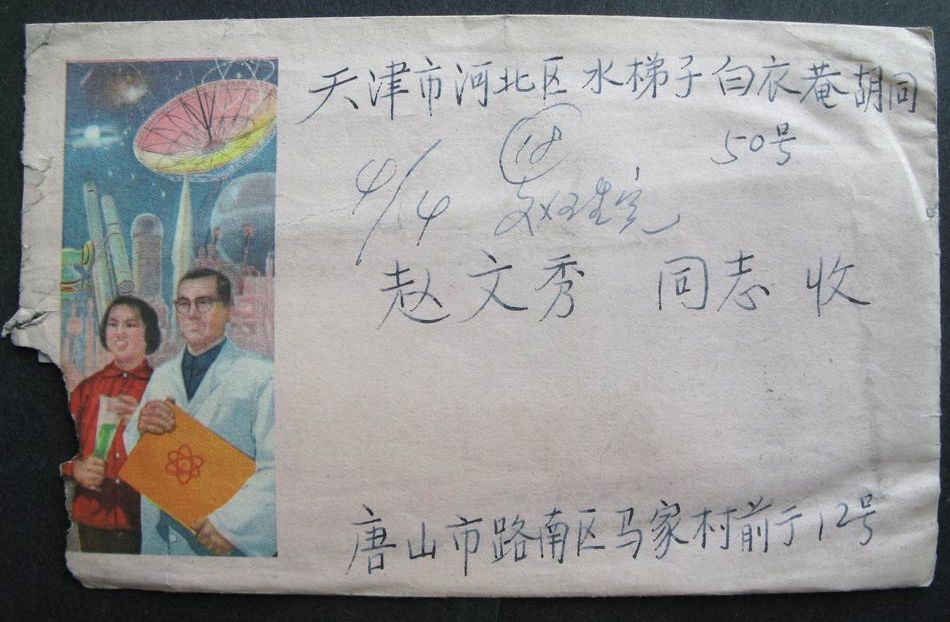 天津市河北区水梯子白衣菴胡同
50号
18
4/14
赵文秀 同志 收
唐山市路南区马家村前于12号